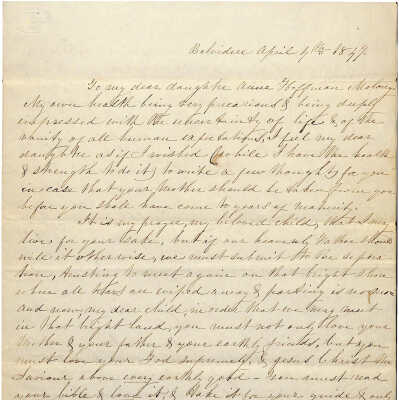 Belvidere April 4th 1847.
To my dear daughter Anna Hoffman Malony
My own health being very precarious & being deeply
impressed with the uncertainty of life & of the
vanity of all human expectations, I feel my dear
daughter as if I wished (while I have the health
& strength to do it) to write a few thoughts for you
in case that your mother should be taken from you
before you shall have come to years of maturity.
It is my prayer, my beloved child, that I may
live for your sake, but if our heavenly Father should
will it otherwise, we must submit to the separa
tion, trusting to meet again on that bright shore
where all tears are wiped away & parting is no more
and now, my dear child, in order that we may meet
in that bright land, you must not only love your
Mother & your father & your earthly friends, but you
must love your God supremely, & Jesus Christ the
Saviour above every earthly good - You must read
your bible & love it, & take it for your guide & only